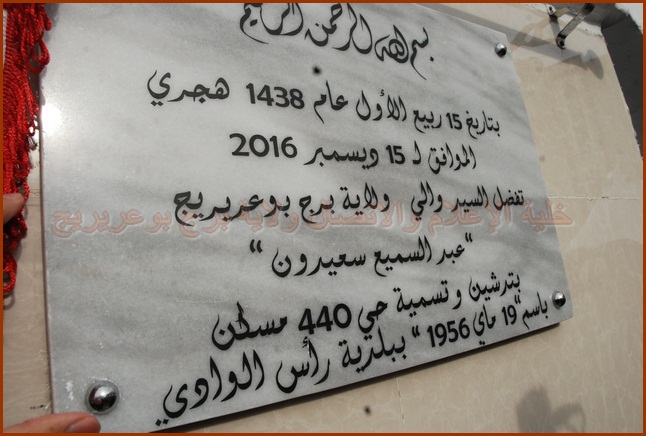 بسم الله الرحمن الرحيم
بتاريخ 15 ربيع الأول عام 1438 هجري
الموافق ل 15 ديسمبر 2016
تفضل السيد والي ولاية برج بوعريريج
خلية الإعلام والاتصال ولاية برج بوعريريج
"عبد السميع سعيدون"
بتدشين وتسمية حي 440 مسكن
باسم "19 ماي 1956" ببلدية رأس الوادي